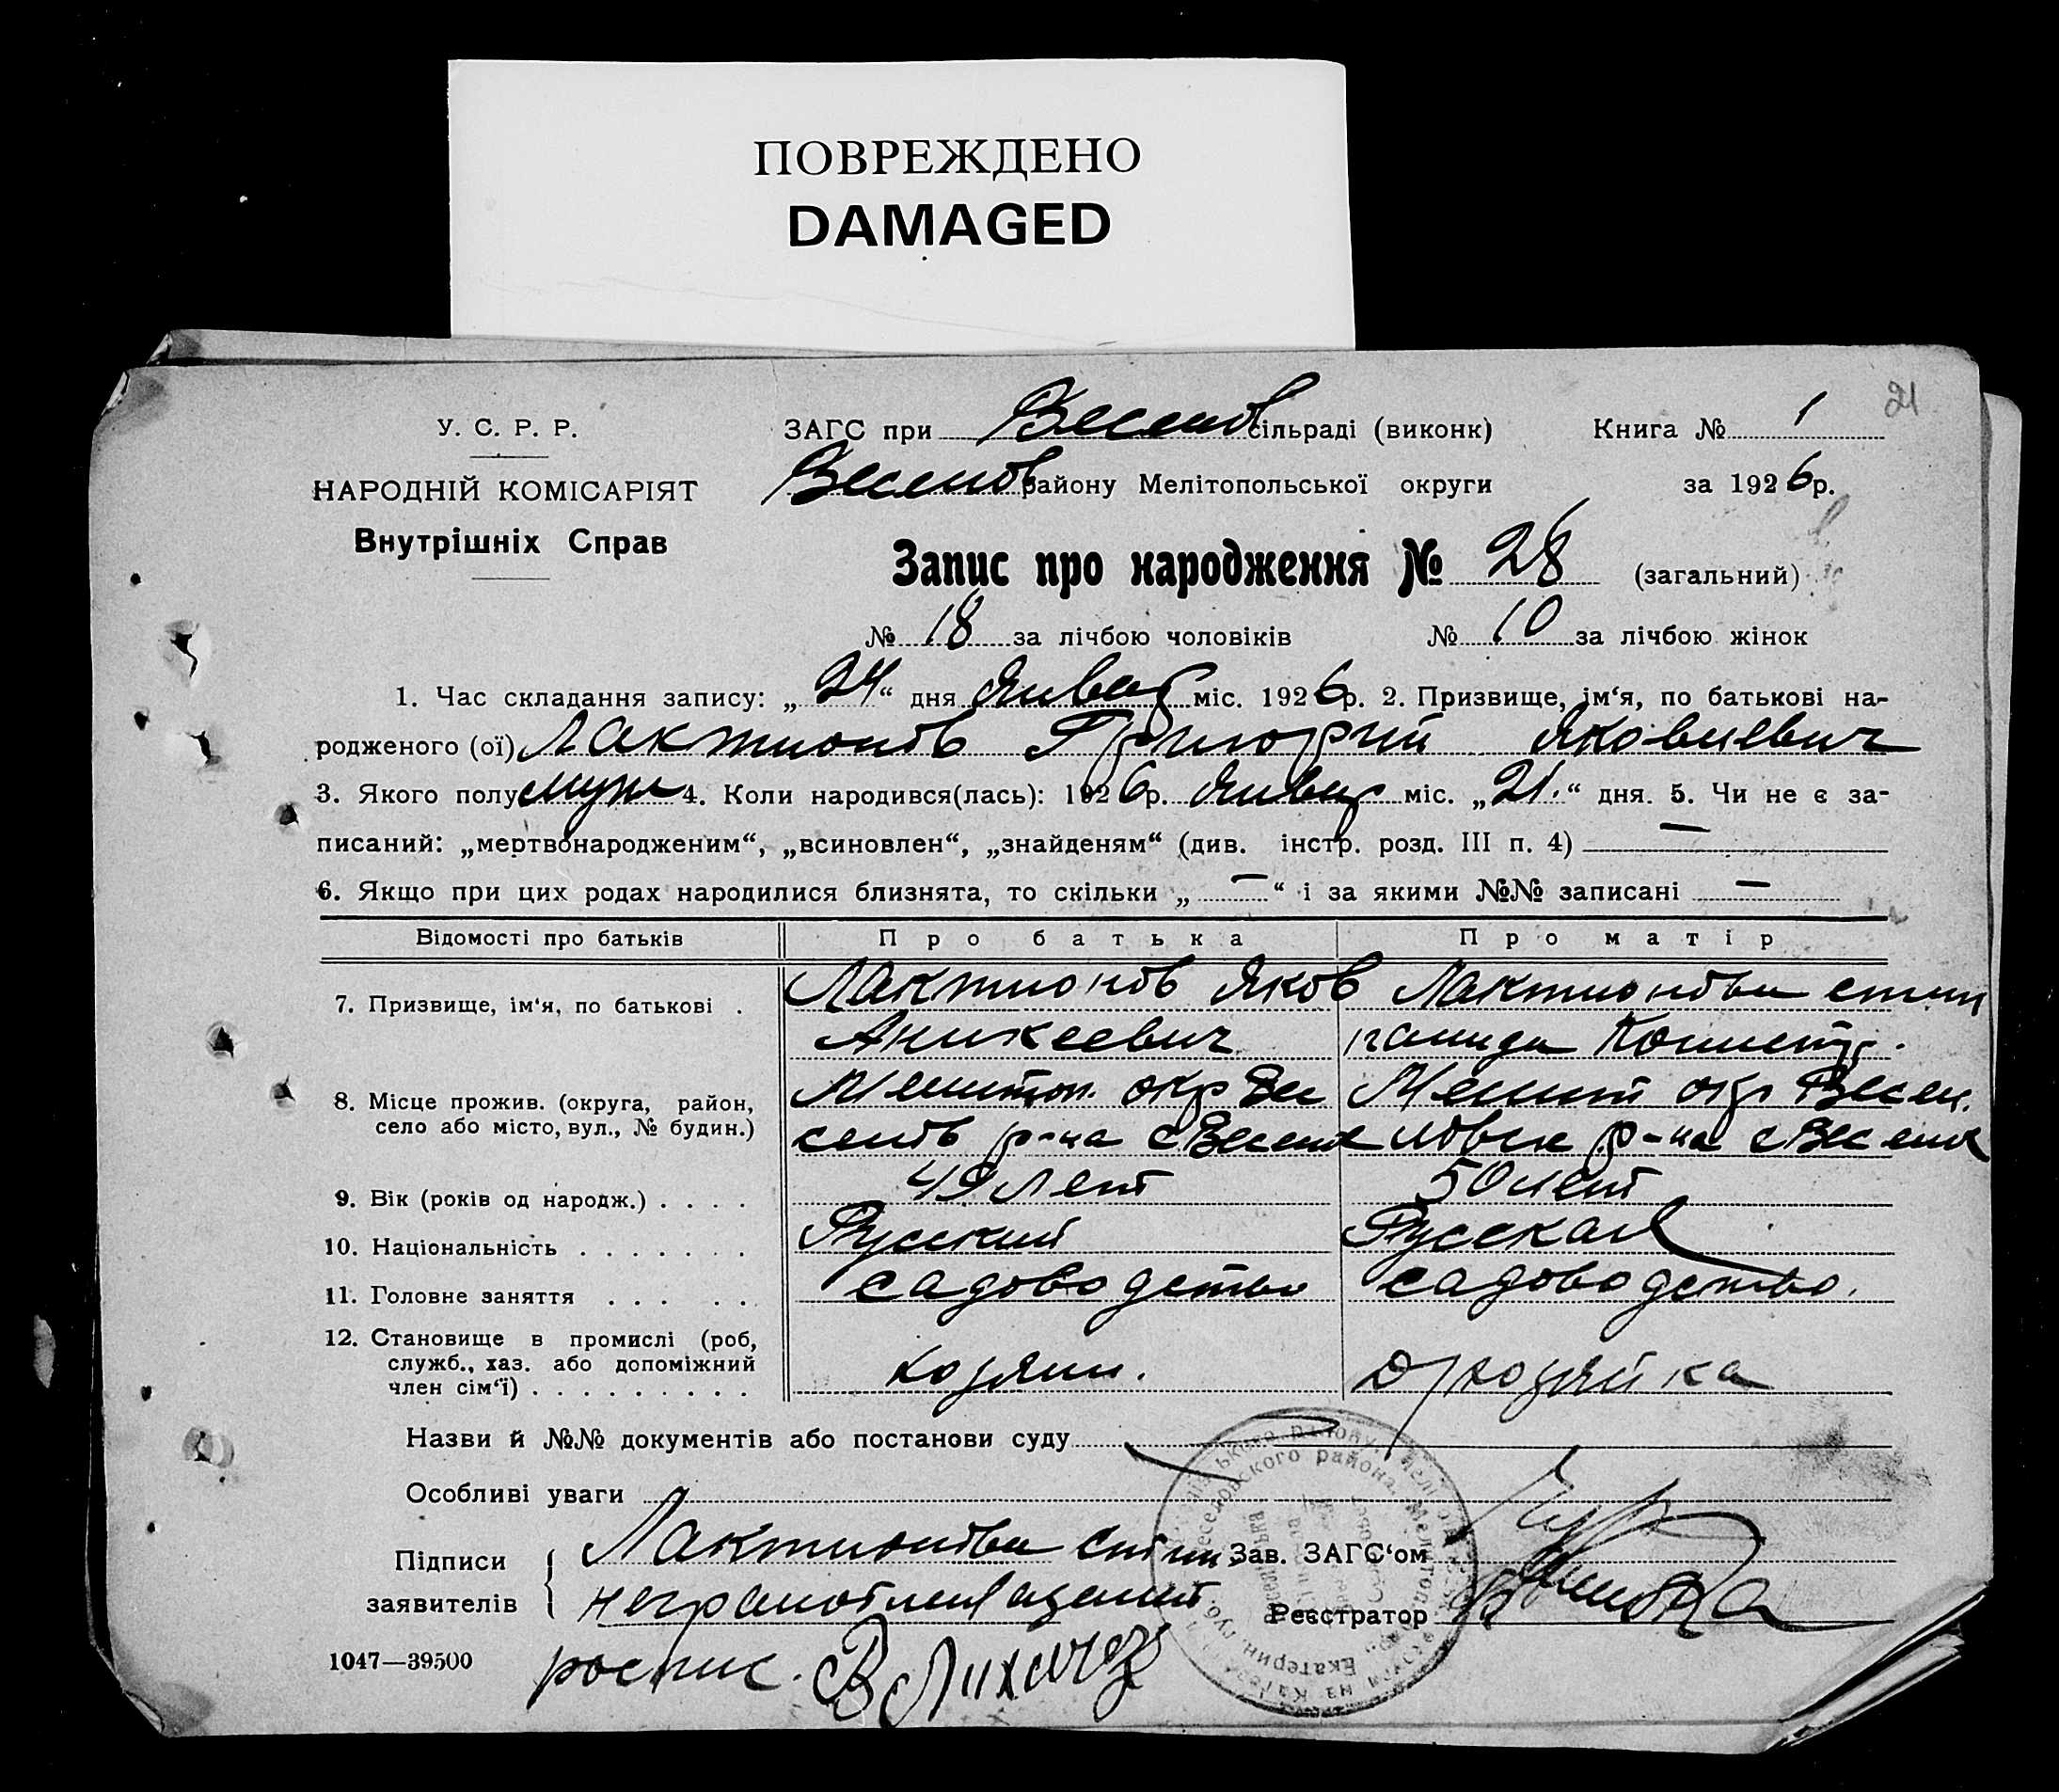 ПОВРЕЖДЕНО
DAMAGED
21
У. С. Р. Р.
НАРОДНІЙ КОМІСАРІЯТ
Внутрішніх Справ
ЗАГС при Веселов сільраді (виконк) Книга № 1
Веселов району Мелітопольської округи за 1926 р.
Запис про народження № 28 (загальний)
№ 18 за лічбою чоловіків № 10 за лічбою жінок
1. Час складання запису: „24“ дня Январ міс. 1926 р. 2. Призвище, ім‘я, по батькові на-
родженого (ої) Лактионов Григорий Яковлевич
3. Якого полу муж 4. Коли народився(лась): 1926 р. Январ міс. „21.“ дня. 5. Чи не є за-
писаний: „мертвонародженим“, „всиновлен“, „знайденям“ (див. інстр. розд. III п. 4) —
6. Якщо при цих родах народилися близнята, то скільки „ — “ і за якими №№ записані —
Відомості про батьків Про батька Про матір
7. Призвище, ім‘я, по батькові . Лактионов Яков Лактионова
Аникеевич
8. Місце прожив. (округа, район, Мелитоп. окр Вес Мелит окр Весел.
село або місто, вул., № будин.) селов р-на с Весел р-на с Весел
9. Вік (років од народж.) . . . . 49 лет 50 лет
10. Національність . . . . . . . Русский Русская
11. Головне заняття . . . . . садоводство садоводство.
12. Становище в промислі (роб,
служб., хаз. або допоміжний
член сім‘ї) . . . . . . . . . хозяин. д/хозяйка
Назви й №№ документів або постанови суду
Особливі уваги
Підписи заявителів Лактионова Зав. ЗАГС‘ом
Реєстратор
1047—39500 роспис.